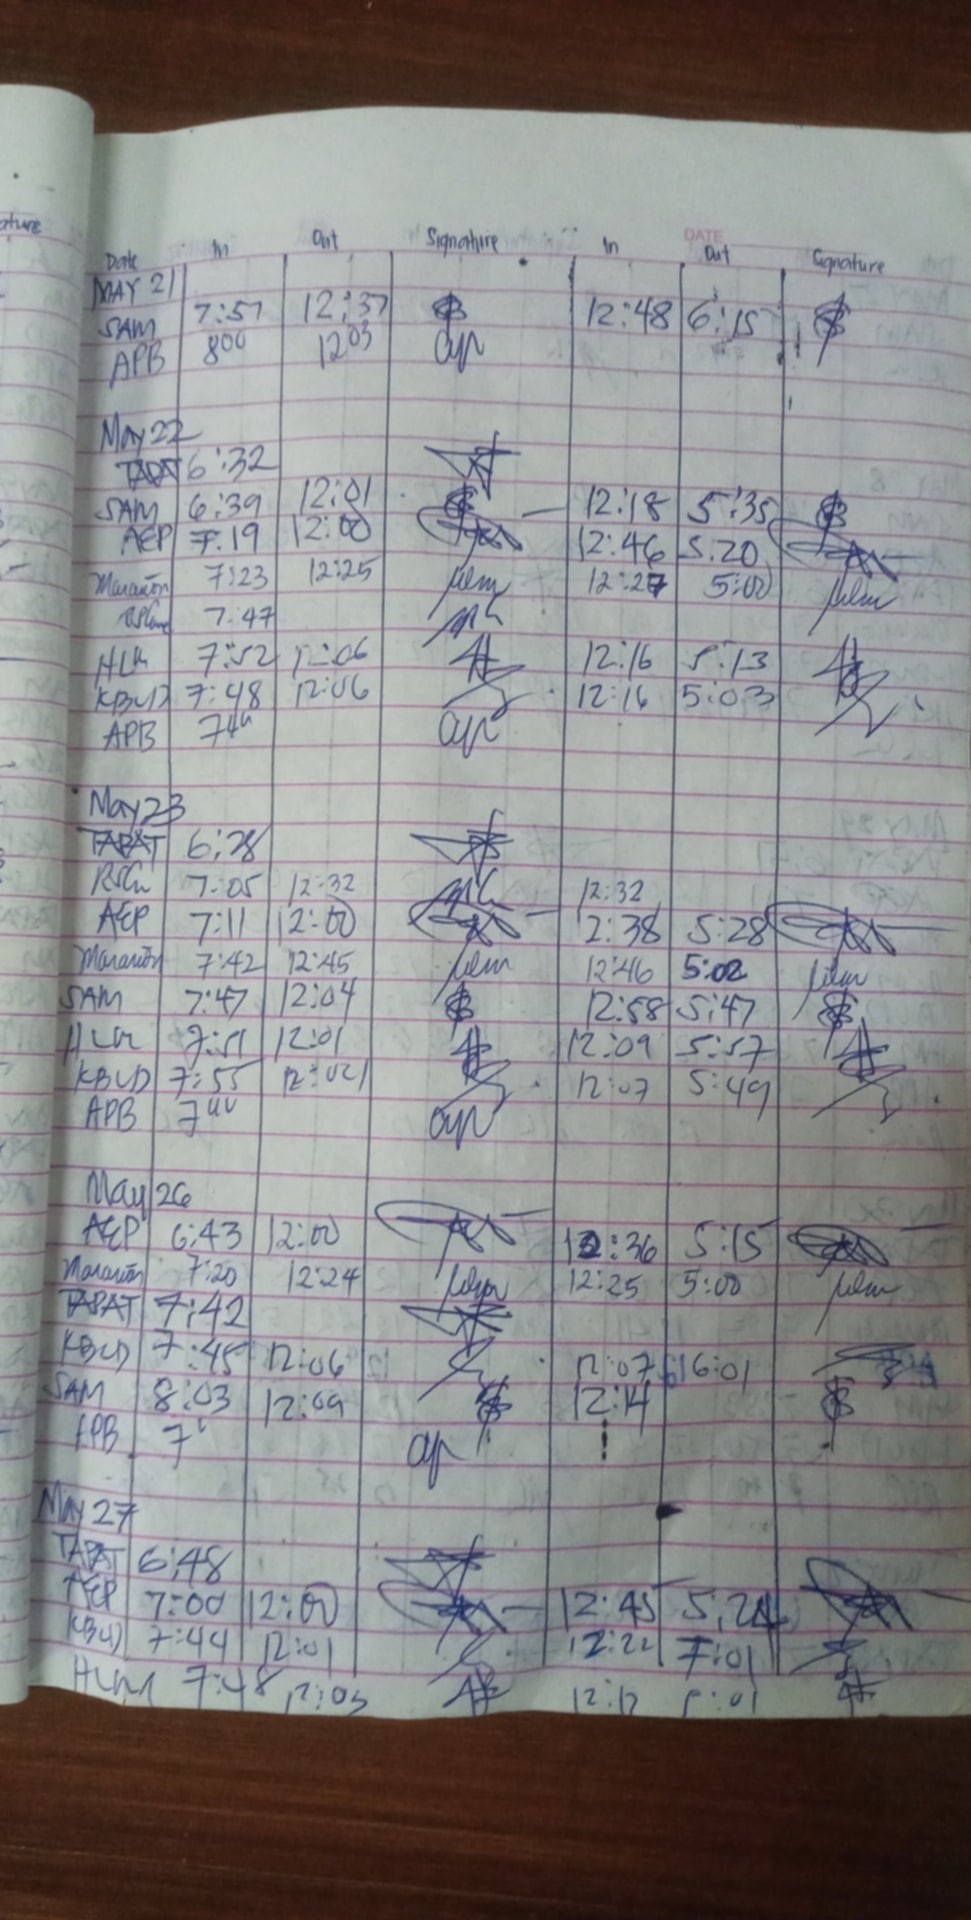 ature
DATE
Date In Out Signature In Out Signature
MAY 21
SAM 7:57 12:37 12:48 6:15
APB 800 1203
May 22
TAPAT 6:32
SAM 6:39 12:01 12:18 5:35
AEP 7:19 12:00 12:46 5:20
Marañon 7:23 12:25 12:27 5:00
7:47
HLM 7:52 12:06 12:16 5:13
KBUD 7:48 12:06 12:16 5:03
APB
May 23
TAPAT 6:28
7:05 12:32 12:32
AEP 7:11 12:00 2:38 5:28
Marañon 7:42 12:45 12:46 5:02
SAM 7:47 12:04 12:58 5:47
HLM 7:51 12:01 12:09 5:57
KBUD 7:55 12:02 12:07 5:49
APB
May 26
AEP 6:43 12:00 12:36 5:15
Marañon 7:20 12:24 12:25 5:00
TAPAT 7:42
KBUD 7:45 12:06 12:07 6:01
SAM 8:03 12:09 12:14
APB
May 27
TAPAT 6:48
AEP 7:00 12:00 12:45 5:24
KBUD 7:44 12:01 12:22 7:01
HLM 7:48 12:03 12:12